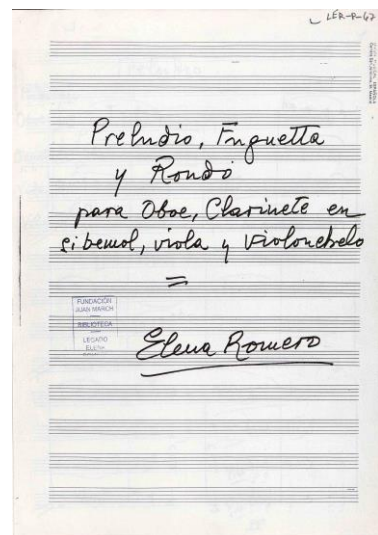 LER-P-62
Preludio, Fuguetta
y Rondó
para Oboe, Clarinete en
si bemol, viola y violonchelo
=
FUNDACIÓN
JUAN MARCH
BIBLIOTECA
LEGADO
ELENA
Elena Romero